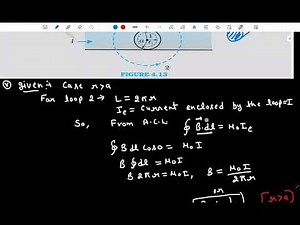 2
FIGURE 4.13
given: Case r>a
For loop 2 → L = 2πr
Ie = Current enclosed by the loop = I
So, From A.C.L ∮ B.dl = μ₀Ie
∮ B dl cos0 = μ₀I
B ∮ dl = μ₀I
B 2πr = μ₀I, B = μ₀I / 2πr
[r>a]